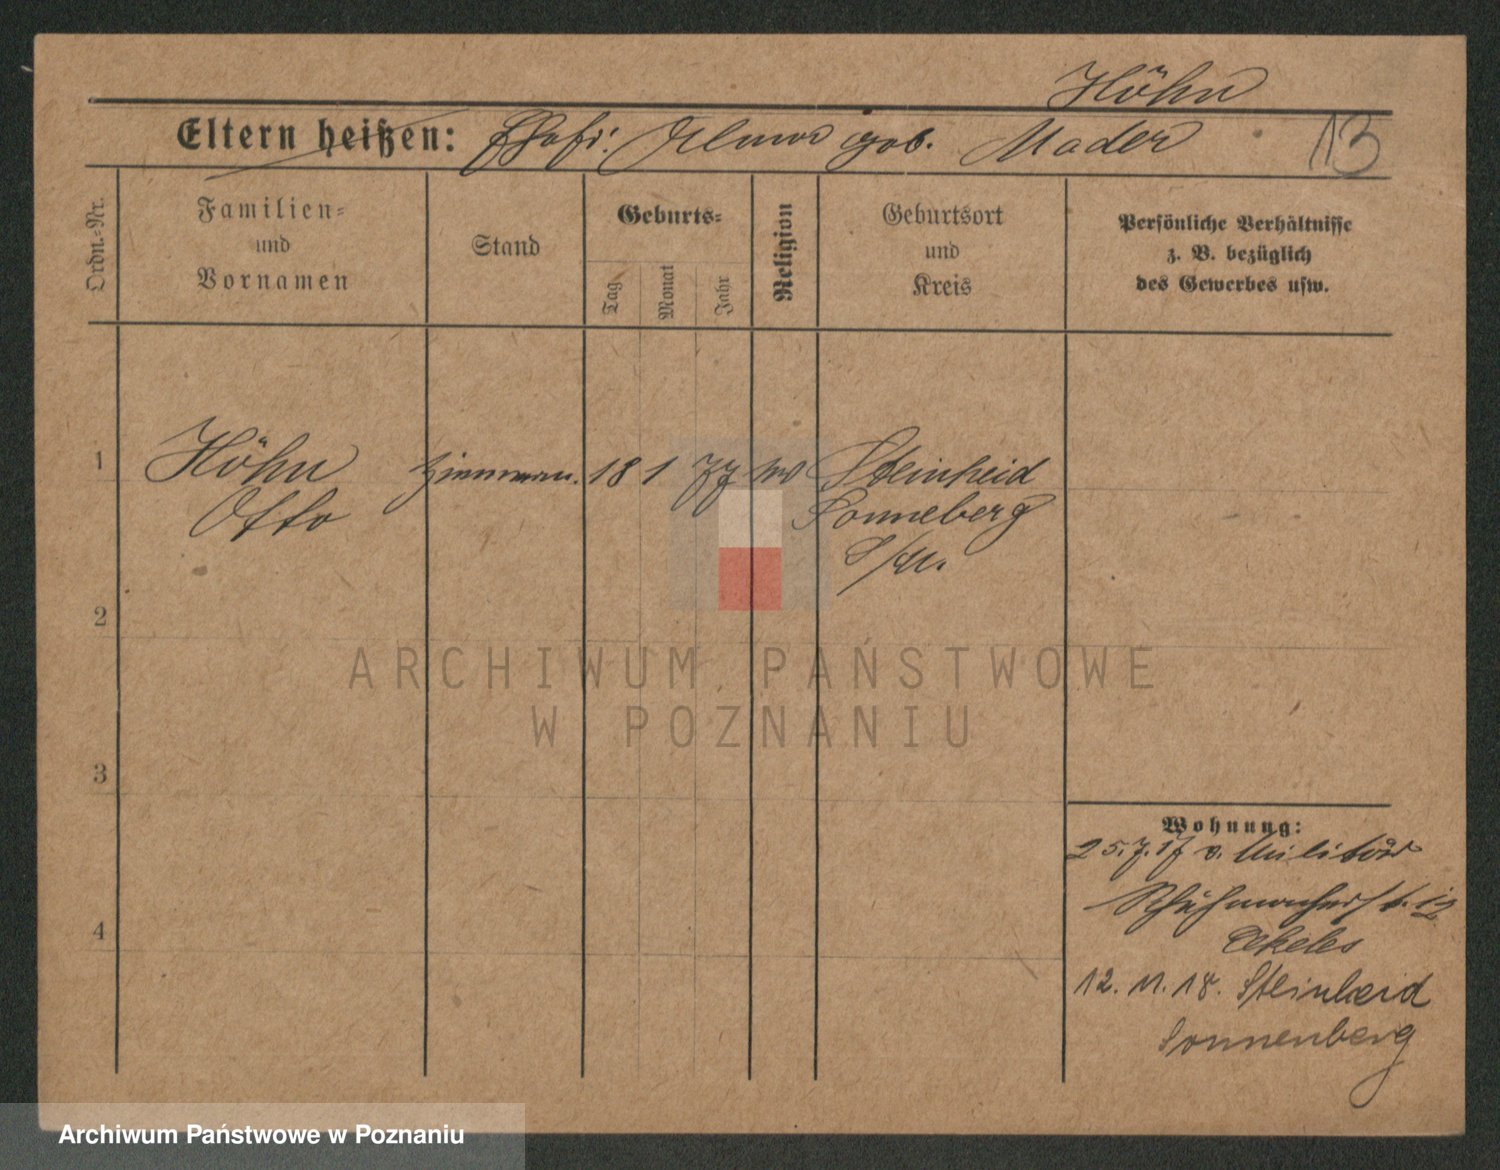 Höhn
Eltern heißen: Ehefr: geb. Mader 13
Ordn.-Nr.
Familien- und Vornamen
Stand
Geburts-
Tag
Monat
Jahr
Religion
Geburtsort und Kreis
Persönliche Verhältnisse
z. B. bezüglich
des Gewerbes usw.
1 Höhn 18 1 77 Steinheid
Otto Sonneberg
S/M.
2
ARCHIWUM PAŃSTWOWE
W POZNANIU
3
Wohnung:
25.7.17 v. Militär
Schuhmacherst. 12
Ekeles
4
12. 11. 18. Steinheid
Sonnenberg
Archiwum Państwowe w Poznaniu